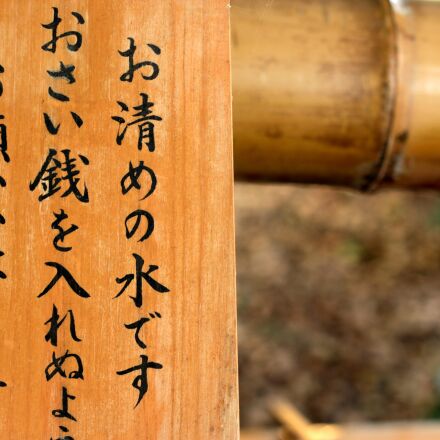 お清めの水です
おさい銭を入れぬよう
お願い